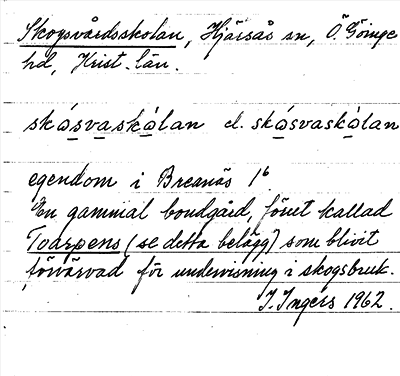 Skogsvårdsskolan, Hjärsås sn, Ö Göinge
hd, Krist. län.
skǫ́svaskǫ̀lan el. skǫ́svaskǫ̀lan
egendom i Breanäs 1⁶
En gammal bondgård, förut kallad
Toarpens (se detta belägg) som blivit
förvärvad för undervisning i skogsbruk.
I. Ingers 1962.